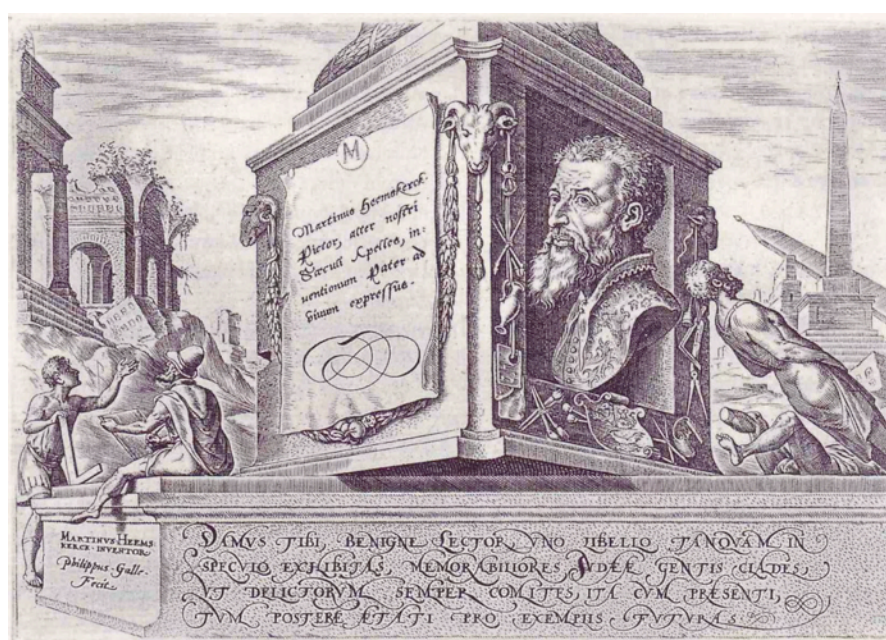 M
Martinus Heemskerck
Pictor, alter nostri
Sæculi Apelles, in:
ventionum Pater ad
vivum expressus.
MARTINVS HEEMS
KERCK INVENTOR
Philippus Galle
Fecit
DAMVS TIBI, BENIGNE LECTOR, VNO LIBELLO TANQVAM IN
SPECVLO EXHIBITAS, MEMORABILIORES IVDÆÆ GENTIS CLADES,
VT DELICTORVM SEMPER COMITES, ITA CVM PRÆSENTI,
TVM POSTERÆ ÆTATI PRO EXEMPLIS FVTVRAS.